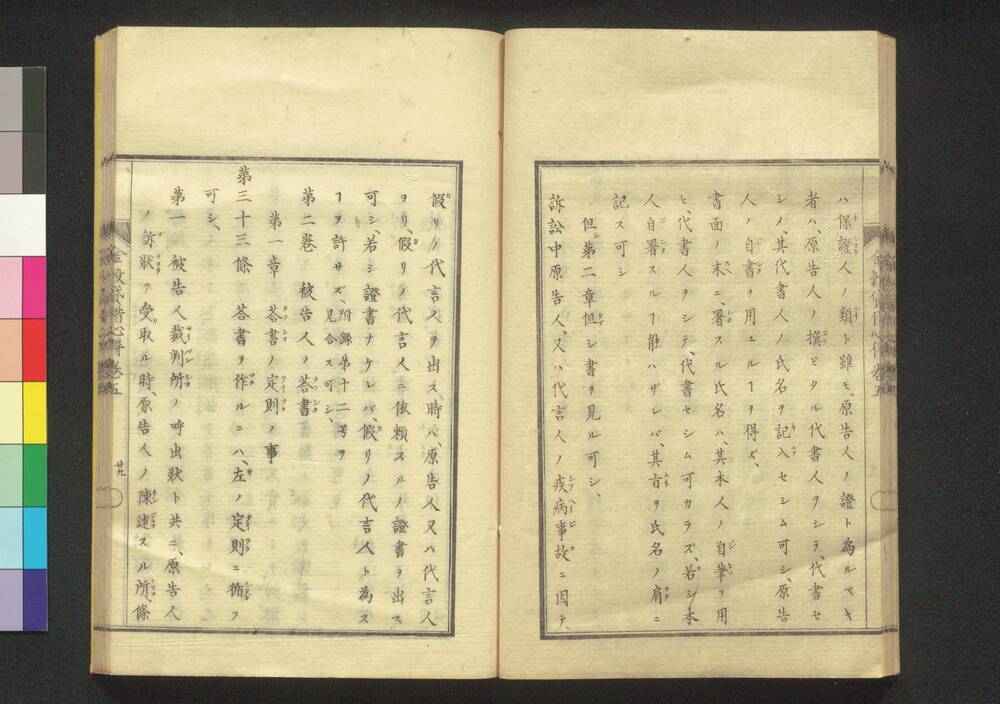 ハ保證人ノ類ト雖モ、原告人ノ證ト為ルベキ
者ハ、原告人ノ撰ビタル代書人ヲシテ、代書セ
シメ、其代書人ノ氏名ヲ記入セシム可シ、原告
人ノ自書ヲ用ユルヿヲ得ズ、
書面ノ末ニ、署スル氏名ハ、其本人ノ自筆ヲ用
ヒ、代書人ヲシテ、代書セシム可カラズ、若シ本
人自署スルヿ能ハザレバ、其旨ヲ氏名ノ肩ニ
記ス可シ
但シ第二章但シ書ヲ見ル可シ、
訴訟中原告人、又ハ代言人ノ疾病事故ニ因テ、
假リノ代言人ヲ出ス時ハ、原告人又ハ代言人
ヨリ、假リノ代言人ニ依頼スルノ證書ヲ出ス
可シ、若シ證書ナケレバ、假リノ代言人ト為ス
ヿヲ許サズ、附録第十二号ヲ見合ス可シ、
第二巻 被告人ノ荅書
第一章 荅書ノ定則ノ事
第三十三條 荅書ヲ作ルニハ、左ノ定則ニ循フ
可シ、
第一 被告人裁判所ノ呼出狀ト共ニ、原告人
ノ訴狀ヲ受取ル時、原告人ノ陳述スル所、條
巻五
廿九